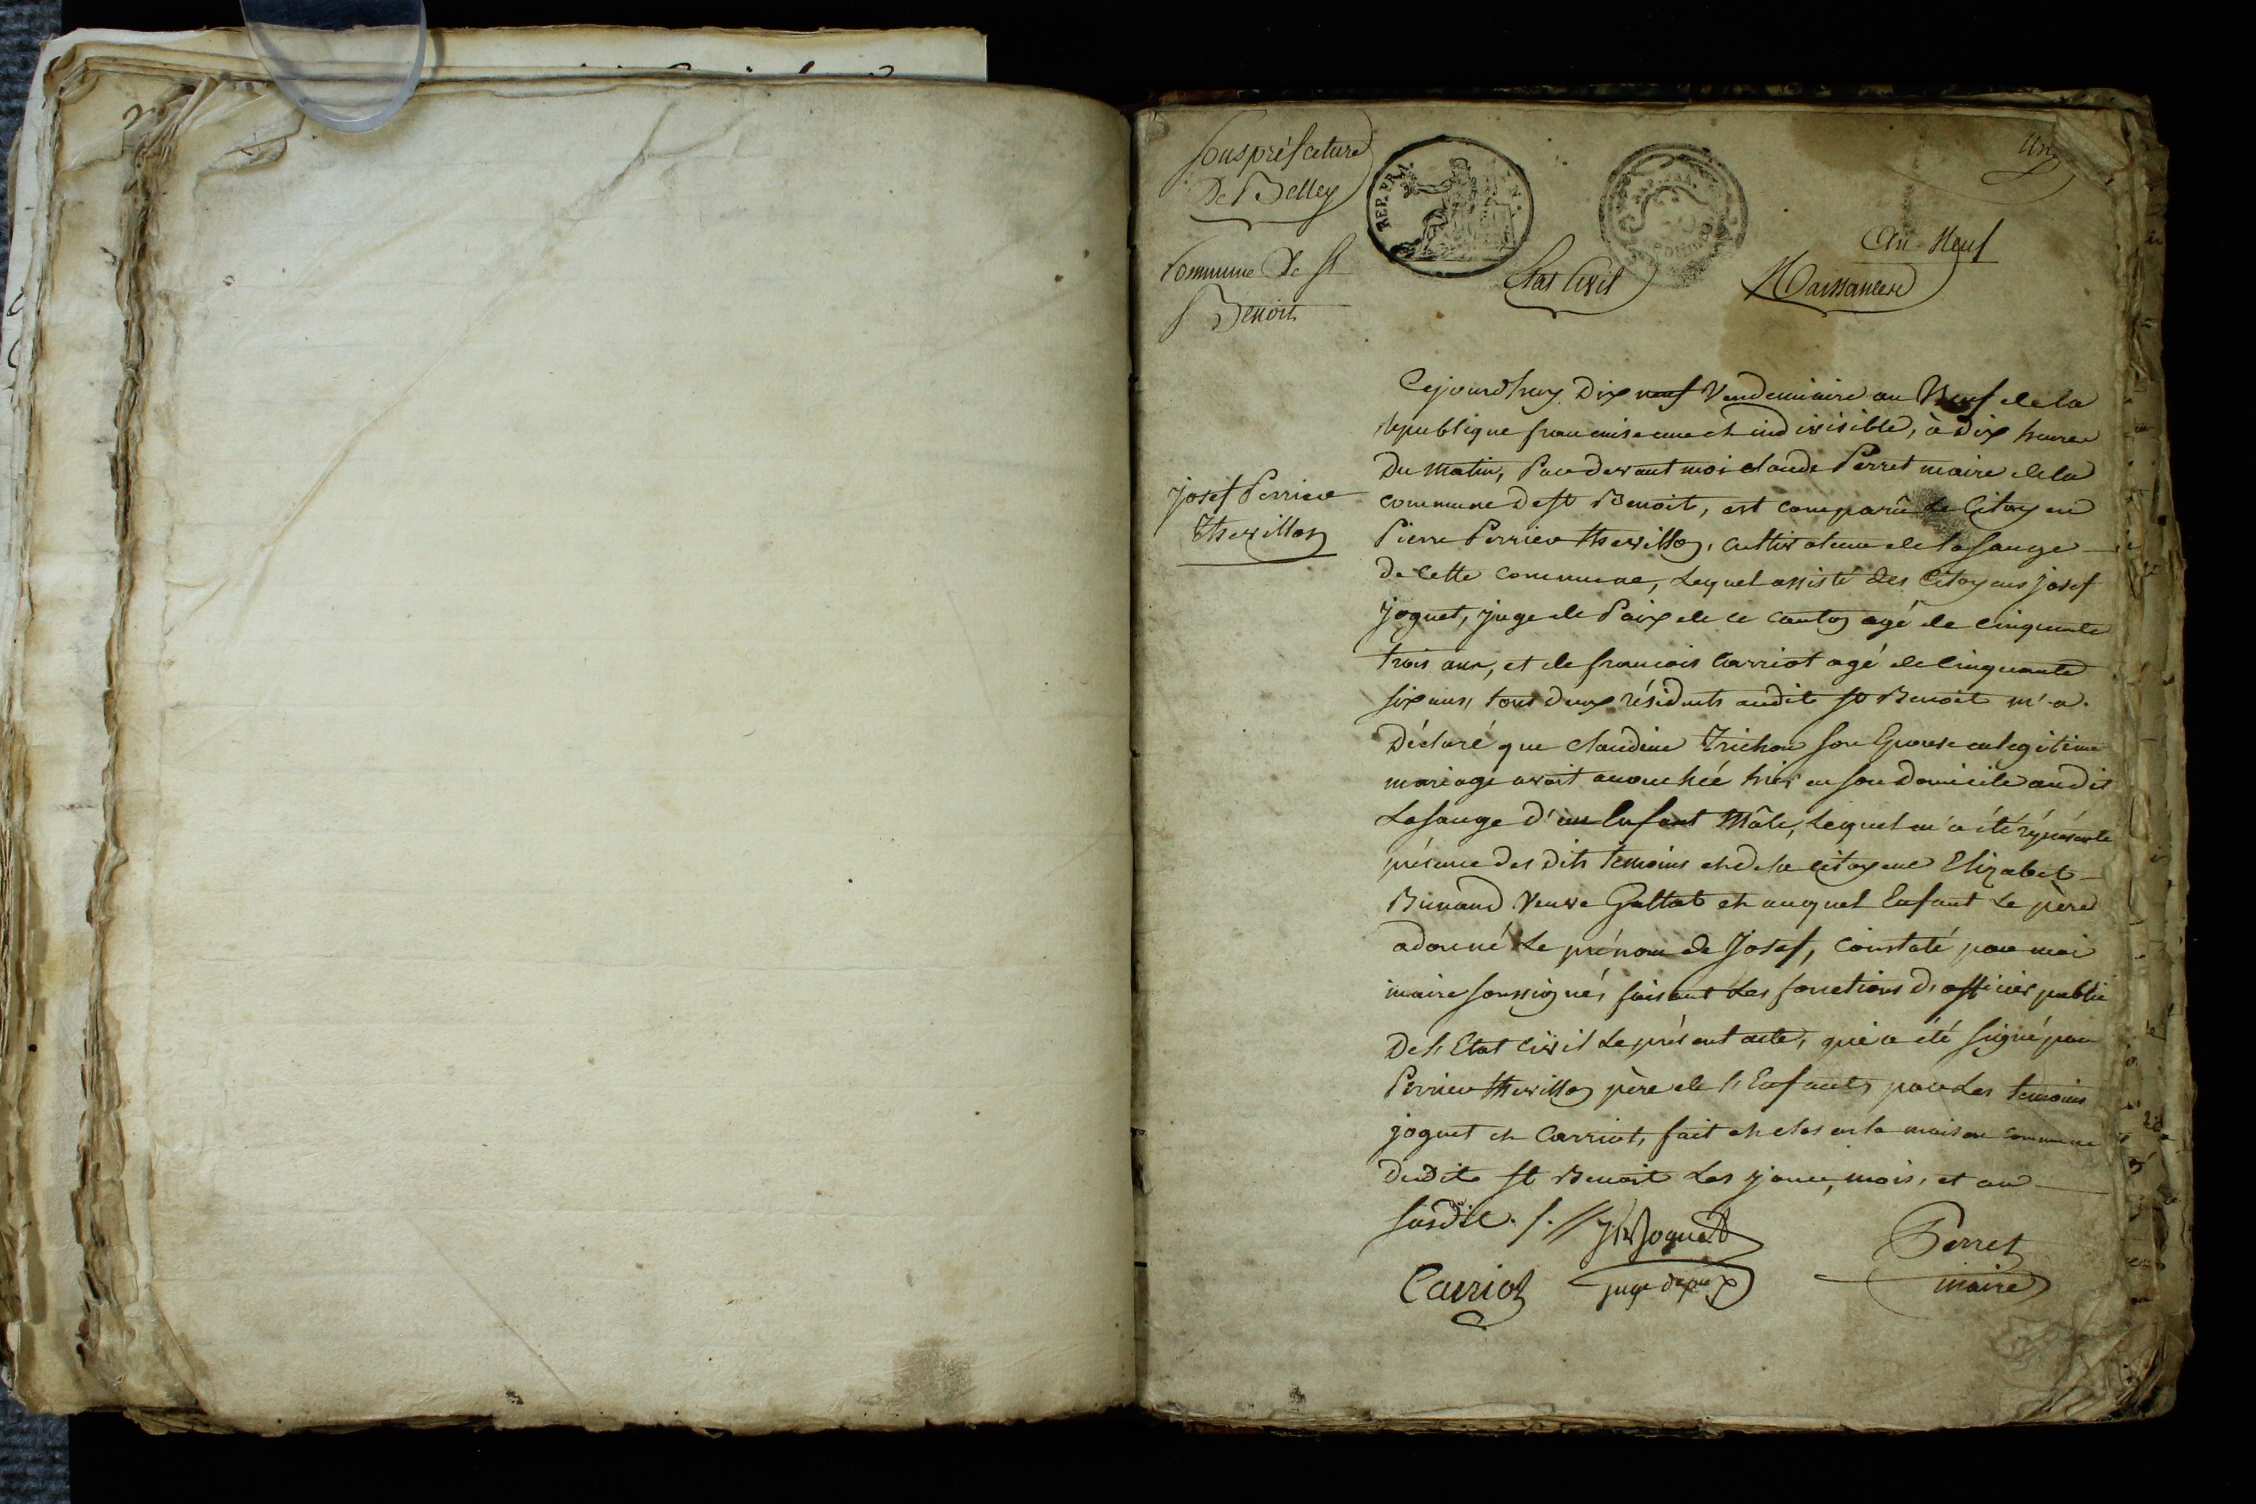 Souspréfecture
De Belley
Commune De St
Benoit
REP. FRA.
Un
An Neuf
Etat Civil
Naissances
Josef Perrier
Thevillon
Cejourdhuy Dix neuf Vendemiaire an Neuf de la
Republique francaise une et indivisible, à dix heures
Du matin, Par devant moi claude Perret maire de la
commune De st Benoit, est comparû Le Citoyen
Pierre Perrier thevillon, cultivateur de la sauge
de cette commune, Lequel assisté des Citoyens Josef
Joguet, juge de Paix de ce canton agé de cinquante
trois ans, et de francois Carriot agé de Cinquante
six ans, tous deux résidents audit st Benoit m'a
Déclaré que claudine Trichon son Epouse en legitime
mariage avoit accouchée hier en son Domicile audit
Lasauge d'un Enfant Mâle, Lequel m'a été réprésenté
présence des dits temoins et de la citoyene Elizabet
Bunand Veuve Galtat et auquel Enfant Le père
a donné Le prénom de Josef, constaté par moi
maire soussigné, faisant Les fonctions d'officier public
De l'Etat Civil Le présent acte, qui a été signé par
Perrier thevillon père de l'Enfant, par Les temoins
joguet et Carriot, fait et clos en la maison commune
Dudit st Benoit Les jour, mois, et an
susdit. /. //
Joguet
juge de paix
Carriot
Perret
maire